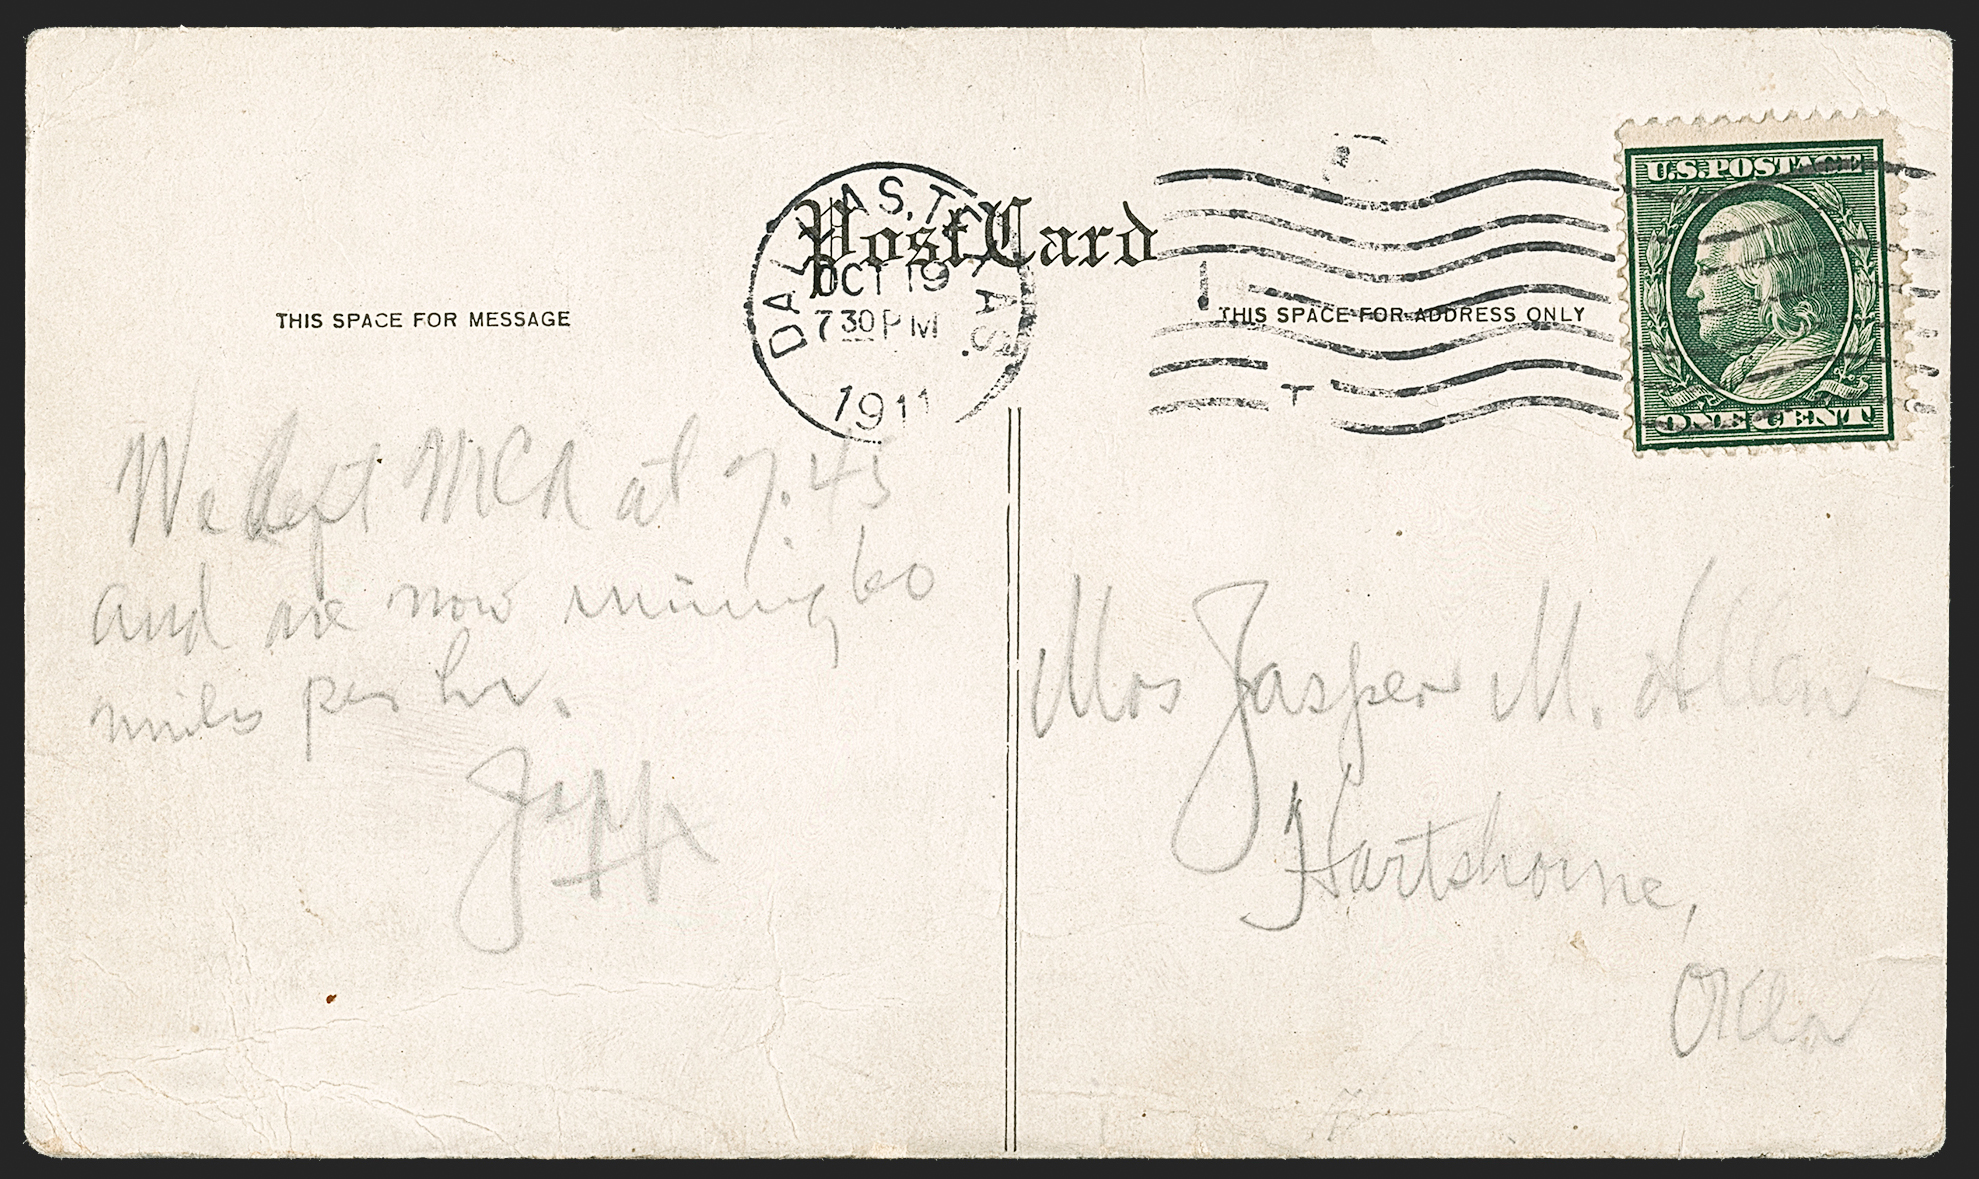 Post Card
DALLAS, TEXAS.
OCT 19
7 30 PM
1911
U.S. POSTAGE
ONE CENT
THIS SPACE FOR MESSAGE
THIS SPACE FOR ADDRESS ONLY
We left MCA at 7.45
and are now running 60
miles per hr.
Jeff
Mrs Jasper M. Allen
Hartshorne,
Okla